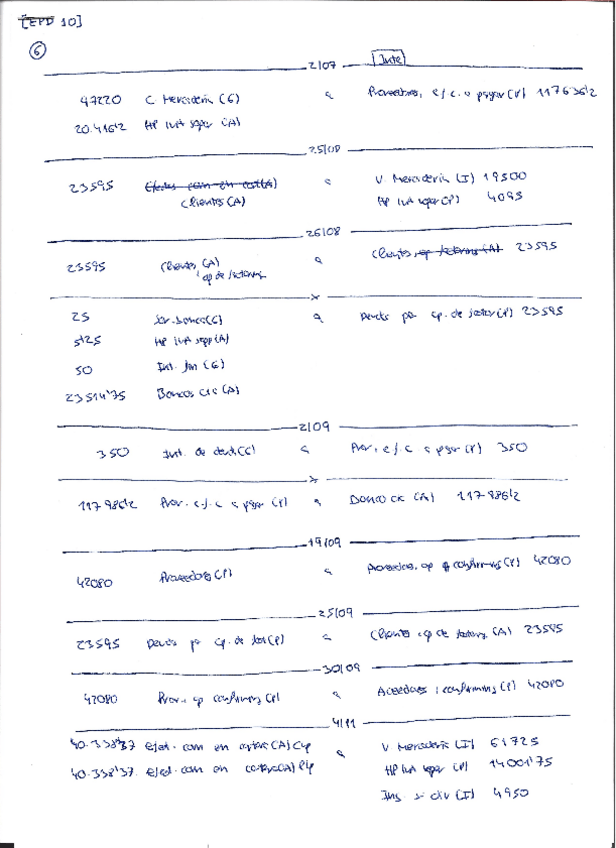 [EPD 10]
6
2/07 Inte
47220 C. Mercadería (G) a Proveedores, e/c. a pagar (P) 117636'2
20.416'2 HP IVA sopor (A)
25/08
23595 Efectos com en cart(A) a V. Mercadería (I) 19500
Clientes (A) HP IVA reper (P) 4095
26/08
23595 Clientes (A) a Clientes, op factoring (A) 23595
op de factoring
x
25 Ser. bancos (G) a Deuda por op. de factor (P) 23595
5'25 HP IVA sopp (A)
50 Int. fin (G)
23514'75 Bancos c/c (A)
2/09
350 Int. de deud. (G) a Prov. e/c a pagar (P) 350
x
117.986'2 Prov. e/c a pagar (P) a Banco cc (A) 117.986'2
19/09
42080 Proveedores (P) a Proveedores, op confirming (P) 42080
25/09
23595 Deuda por op. de fact (P) a Clientes op de factoring (A) 23595
30/09
42080 Prov., op confirming (P) a Acreedores, confirming (P) 42080
4/11
40.338'37 efect. com en cartera (A) C/p a V Mercadería (I) 61725
40.338'37. efect. com en cartera (A) l/p HP IVA reper (P) 14001'75
Ing. (I) 4950